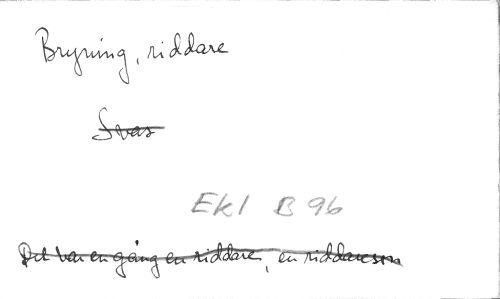 Bryning, riddare
Svar
Ekl B 96
Det var en gång en riddare, en riddare som